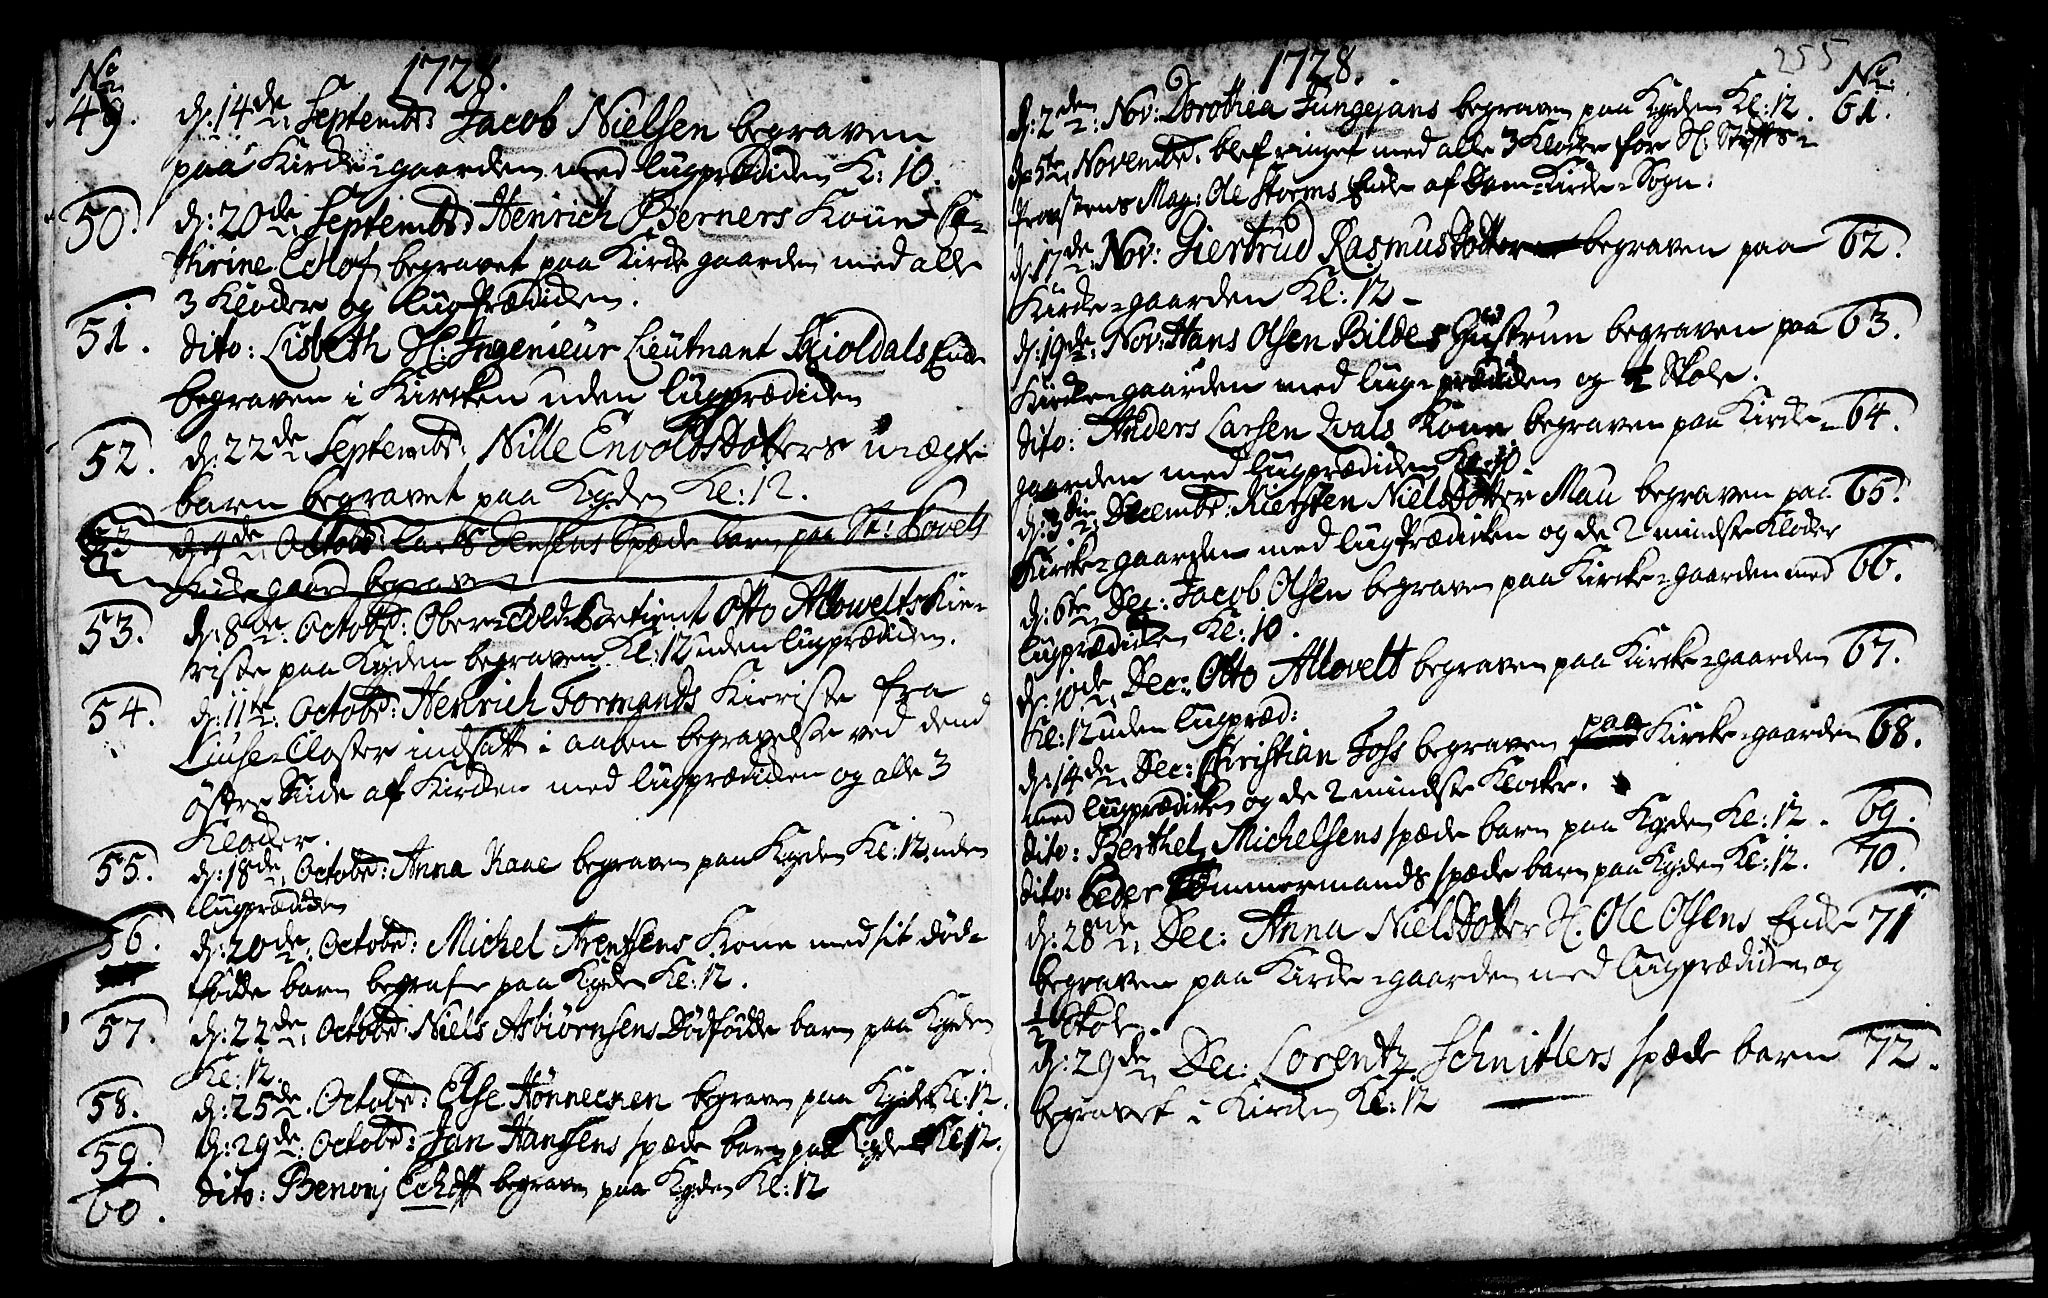 No
1728.
49. d: 14de Septembr: Jacob Nielsen begraven
paa Kircke-gaarden med liigprædicken K: 10.
50. d: 20de Septembr: Henrich Berners Kone Ca-
thrine Echlof begravet paa Kircke gaarden med alle
3 Klocker og liigPrædicken.
51. dito: Lisbeth H: Ingenieur Lieutnant Skioldals Encke
begraven i Kircken uden liigprædicken
52. d: 22de Septembr: Nille EnvoldsDotters uægte
barn begravet paa Kgden Kl: 12.
53 d: 4de Octobr: Lars Jensens Spæde barn paa St:
Kircke gaard begraven
53. d: 8de Octobr: Ober- Otto Allowelts Kie-
riste paa Kgden begraven Kl: 12 uden liigprædicken.
54. d: 11te Octobr: Henrich Formands Kieriste fra
Closter indsatt i aaben begravelse ved dend
østre Siide af Kircken med liigprædicken og alle 3
Klocker.
55. d: 18de Octobr: Anna Kaae begraven paa Kgden Kl: 12 uden
liigprædicken
56. d: 20de Octobr: Michel Arentsens Kone med sit død-
fødde barn begrafne paa Kgden Kl: 12.
57. d: 22de Octobr: Niels Asbiørnsens Dødfødde barn paa Kgden
Kl: 12.
58. d: 25de Octobr: Else Hønnecken begraven paa Kgden Kl: 12.
59. d: 29de Octobr: Jan Hanssens spæde barn paa Kgden Kl 12.
60. dito: Benonj Echhoff begraven paa Kgden Kl: 12
255
1728.
No
d: 2den Nov: Dorothea Jungejans begraven paa Kgden Kl: 12. 61.
d: 5te Novembr: blef ringet med alle 3 Klocker for H: Stiffts-
Provstens Mag: Ole Storms Encke af Dom-Kircke-Sogn.
d: 17de Nov: Giertrud Rasmusdotter begraven paa 62.
Kircke-gaarden Kl: 12-
d: 19de Nov: Hans Olsen Bildes Hustrun begraven paa 63.
Kircke-gaarden med liig-prædicken og ½ Skole.
dito: Anders Larsen Kone begraven paa Kircke- 64.
gaarden med liigprædicken Kl: 10
d: 3die Decembr: Kiersten NielsDotter Mau begraven paa 65.
Kircke-gaarden med liigPrædicken og de 2 mindste Klocker
d: 6te Dec: Jacob Olsen begraven paa Kircke-gaarden med 66.
liigprædicken Kl: 10.
d: 10de Dec: Otto Allovelt begraven paa Kircke-gaarden 67.
Kl: 12 uden liigpræd:
d: 14de Dec: Christian Joss begraven paa Kircke-gaarden 68.
med liigprædicken og de 2 mindste Klocker.
dito: Berthel Michelsens spæde barn paa Kgden Kl: 12. 69.
dito: Peder Tømmermands spæde barn paa Kgden Kl: 12. 70.
d: 28de Dec: Anna NielsDotter H: Ole Olsens Encke 71
begraven paa Kircke-gaarden med liigprædicken og
½ Skole.
d: 29de Dec: Lorentz Schnitlers spæde barn 72.
begravet i Kircken Kl: 12